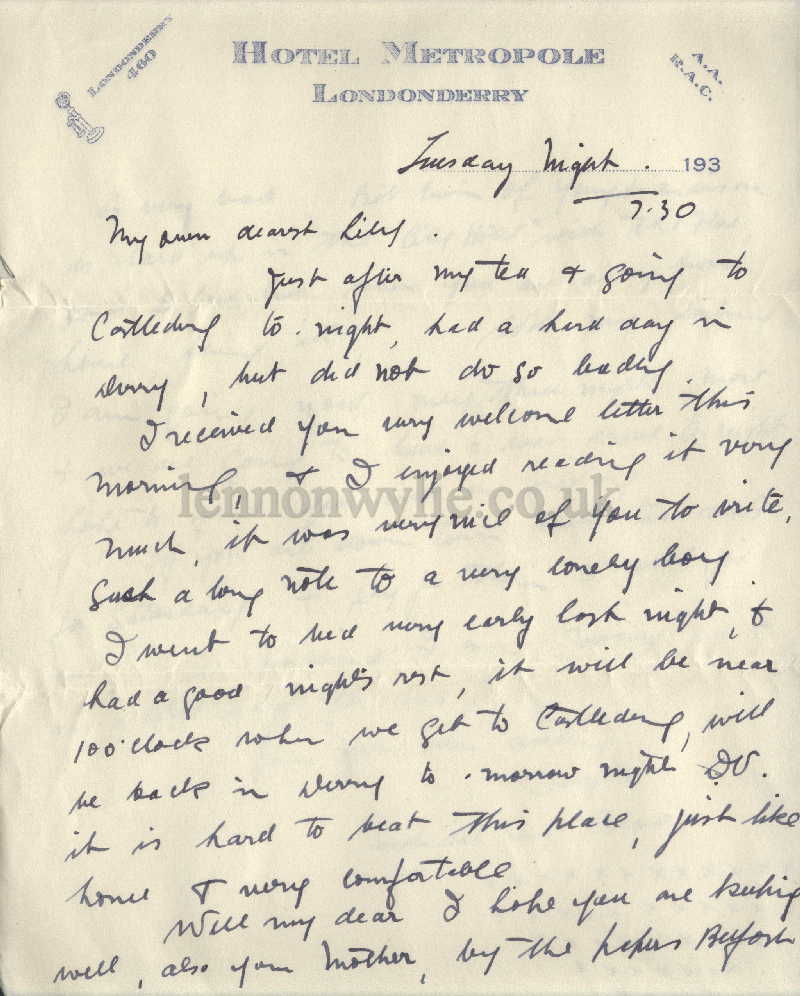 LONDONDERRY
460
HOTEL METROPOLE
LONDONDERRY
A.A.
R.A.C.
Tuesday Night. 193
7.30
My own dearest Lily.
Just after my tea & going to
Castlederg to.night, had a hard day in
Derry, but did not do so badly
I received you very welcome letter this
morning, & I enjoyed reading it very
much, it was very nice of you to write,
such a long note to a very lonely boy
I went to bed very early last night, &
had a good night's rest, it will be near
10 o'clock when we get to Castlederg, will
be back in Derry to.morrow night D.V.
it is hard to beat this place, just like
home & very comfortable
Well my dear I hope you are keeping
well, also your Mother, by the papers Belfast
lennonwylie.co.uk